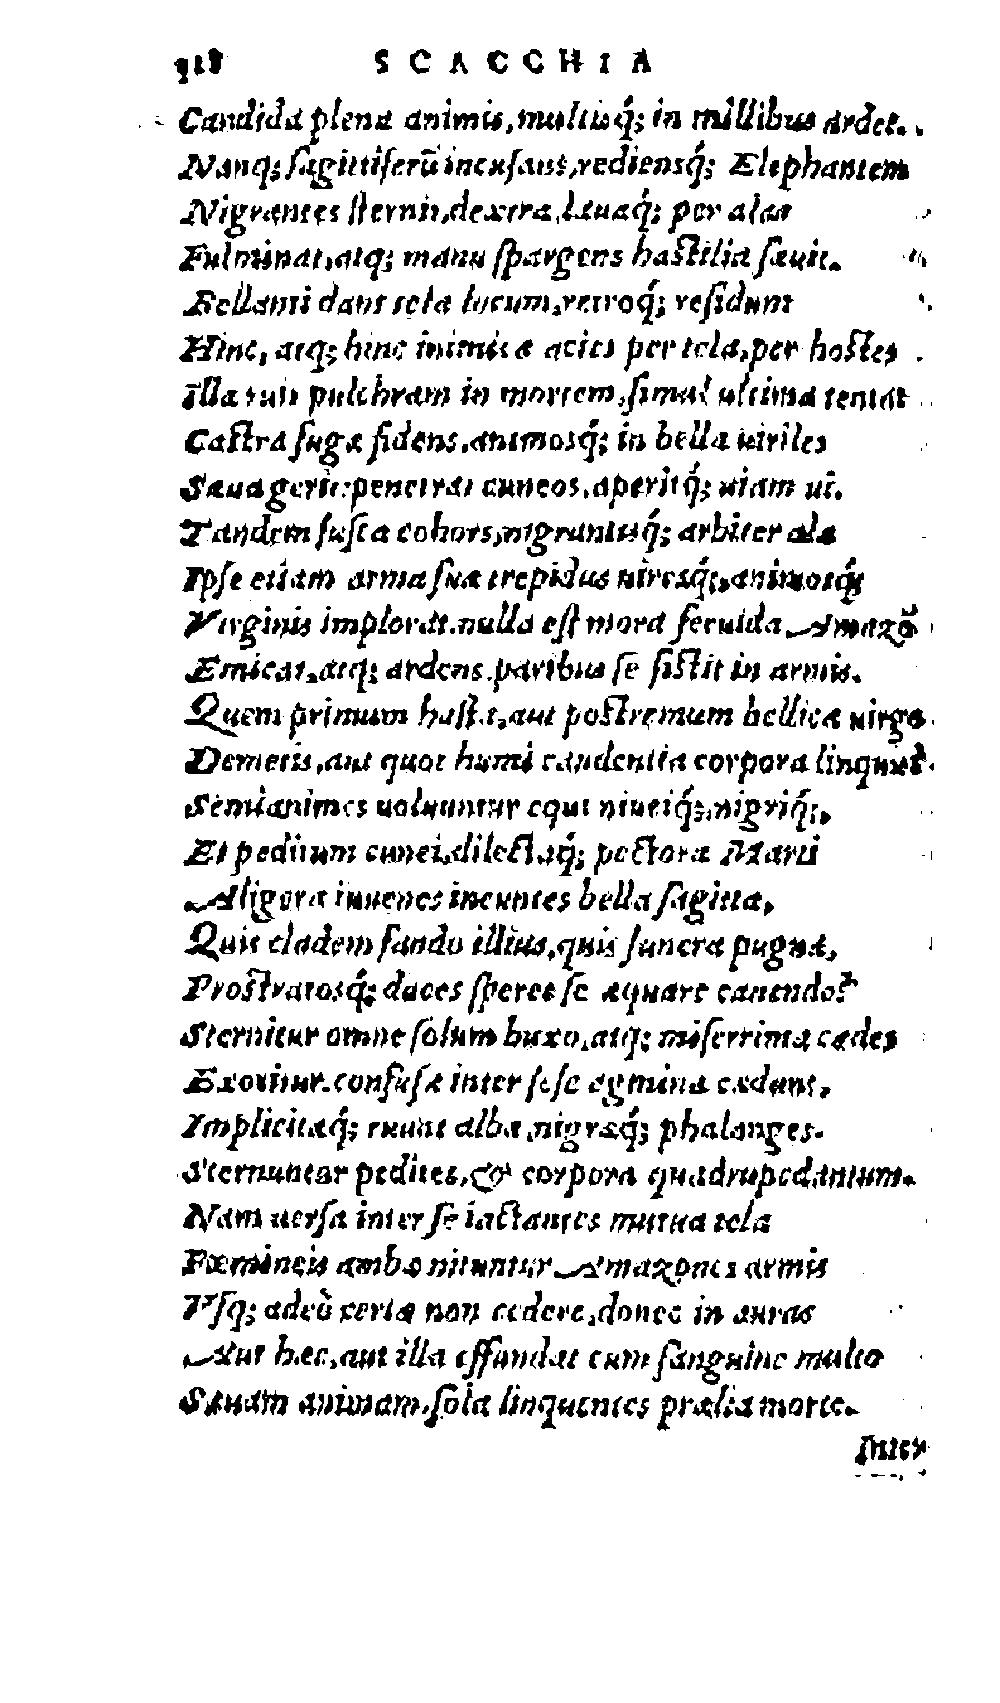 318 SCACCHIA
Candida plena animis, multisq́; in millibus ardet.
Nanq; sagittiferũ incusans, rediensq́; Elephantem
Nigrantes sternit, dextra, læuaq́; per alas
Fulminat, atq; manu spargens hastilia sæuit.
Bellanti dant tela locum, retroq́; residunt
Hinc, atq; hinc inimicæ acies per tela, per hostes
Illa ruit pulchram in mortem, simul ultima tentat
Castra fugæ fidens, animosq́; in bella uiriles
Sæua gerit: penetrat cuneos, aperitq́; uiam ui.
Tandem fusca cohors, nigrantisq́; arbiter alæ
Ipse etiam arma suæ trepidus uiresq́;, animosq́;
Virginis implorat. nulla est mora feruida Amazõ
Emicat, atq; ardens paribus se sistit in armis.
Quem primum hasta, aut postremum bellica uirgo
Demetis, aut quot humi candentia corpora linquis?
Semianimes uoluuntur equi niueiq́;, nigriq́;,
Et peditum cunei, dilectaq́; pectora Marti
Aligera iuuenes ineuntes bella sagitta,
Quis cladem fando illius, quis funera pugnæ,
Prostratosq́; duces speret se æquare canendo?
Sternitur omne solum buxo, atq; miserrima cædes
Exoritur. confusa inter sese agmina cædunt,
Implicitæq́; ruunt albæ, nigræq́; phalanges.
Sternuntur pedites, & corpora quadrupedantum.
Nam uersa inter se iactantes mutua tela
Fœmineis ambæ nituntur Amazones armis
Vsq; adeò certæ non cedere, donec in auras
Aut hæc, aut illa effundat cum sanguine multo
Sæuam animam, sola linquentes prælia morte.